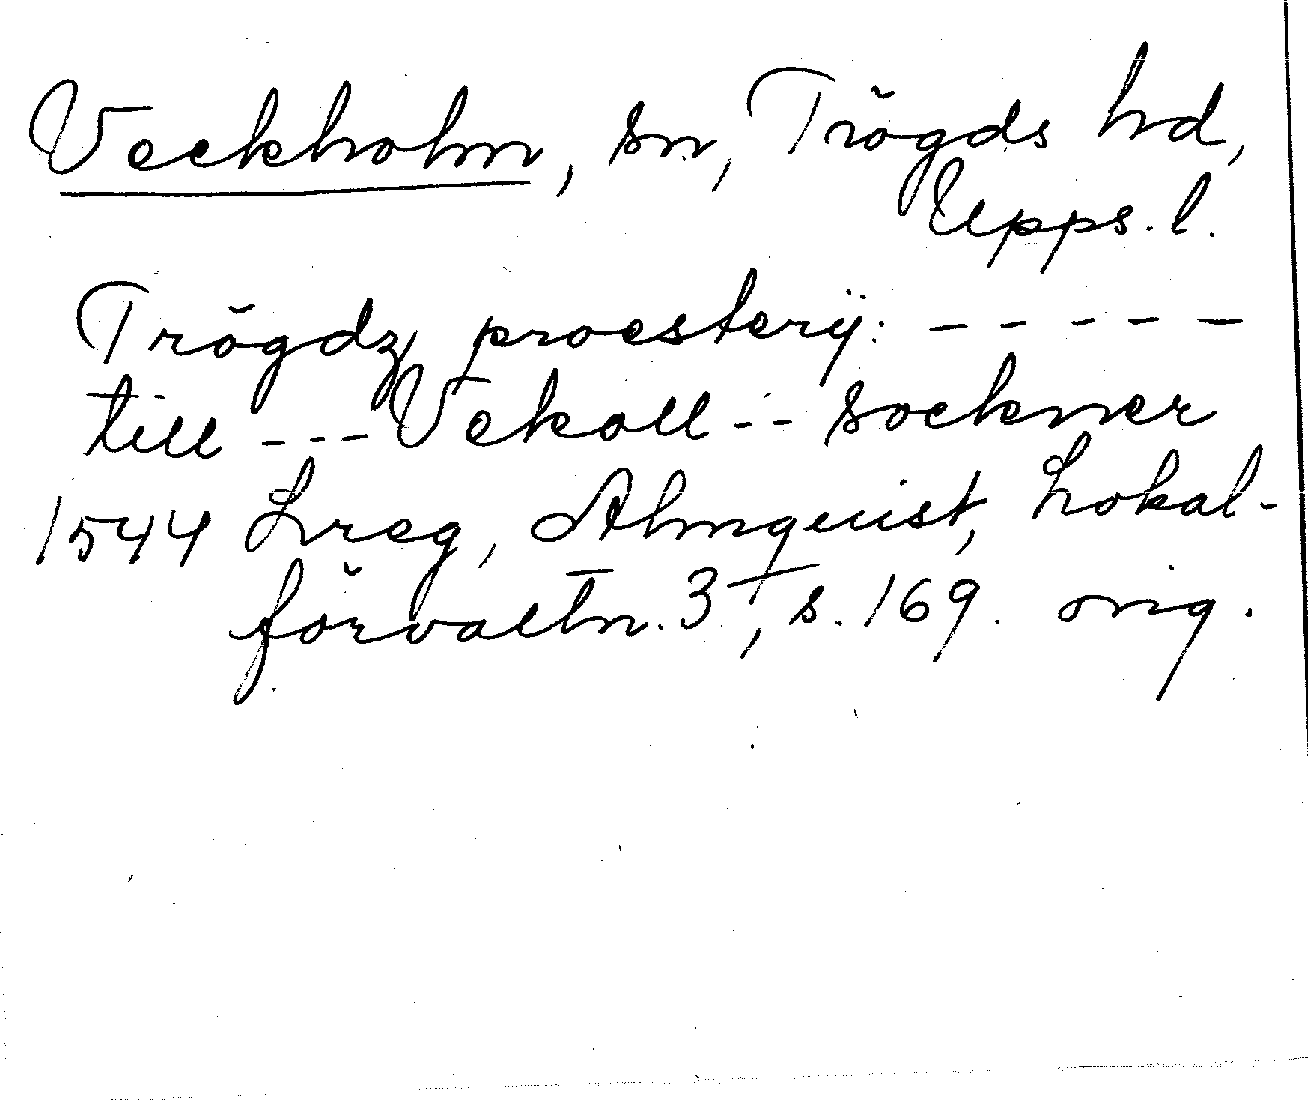 Veckholm, sn, Trögds hd,
Upps. l.
Trögdz proesterij: - - - - -
till - - - Vekoll - - sockner
1544 Lreg, Almquist, Lokal-
förvaltn. 3, s. 169. orig.